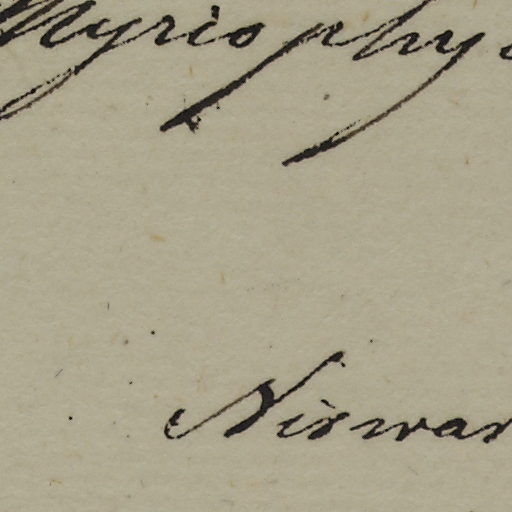 Myriophy
Nirwar